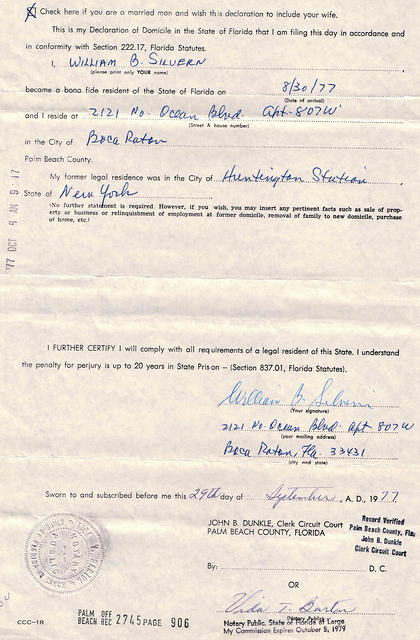 Check here if you are a married man and wish this declaration to include your wife.
This is my Declaration of Domicile in the State of Florida that I am filing this day in accordance and
in conformity with Section 222.17, Florida Statutes.
I, WILLIAM B. SILVERN
(please print only YOUR name)
became a bona fide resident of the State of Florida on 8/30/77
(Date of arrival)
and I reside at 2121 No. Ocean Blvd. Apt-807W
(Street & house number)
in the City of Boca Raton
Palm Beach County.
My former legal residence was in the City of Huntington Station,
State of New York
(No further statement is required. However, if you wish, you may insert any pertinent facts such as sale of prop-
erty or business or relinquishment of employment at former domicile, removal of family to new domicile, purchase
of home, etc.)
'77 OCT 4 AM 9 17
I FURTHER CERTIFY I will comply with all requirements of a legal resident of this State. I understand
the penalty for perjury is up to 20 years in State Prison – (Section 837.01, Florida Statutes).
William B. Silvern
(Your signature)
2121 No. Ocean Blvd. Apt 807W
(your mailing address)
Boca Raton, Fla. 33431
(city and state)
Sworn to and subscribed before me this 29th day of September, A, D., 1977
JOHN B. DUNKLE, Clerk Circuit Court
PALM BEACH COUNTY, FLORIDA
Record Verified
Palm Beach County, Fla.
John B. Dunkle
Clerk Circuit Court
By: D. C.
OR
Vida T. Barton
(Notary Public)
Notary Public, State of Florida at Large
My Commission Expires October 5, 1979
CCC-1R
PALM OFF
BEACH REC 2745 PAGE 906